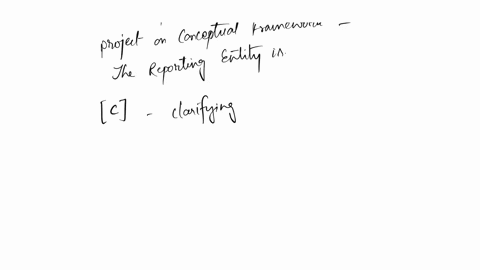 project on Conceptual Framework -
The Reporting Entity is.
[C] - clarifying